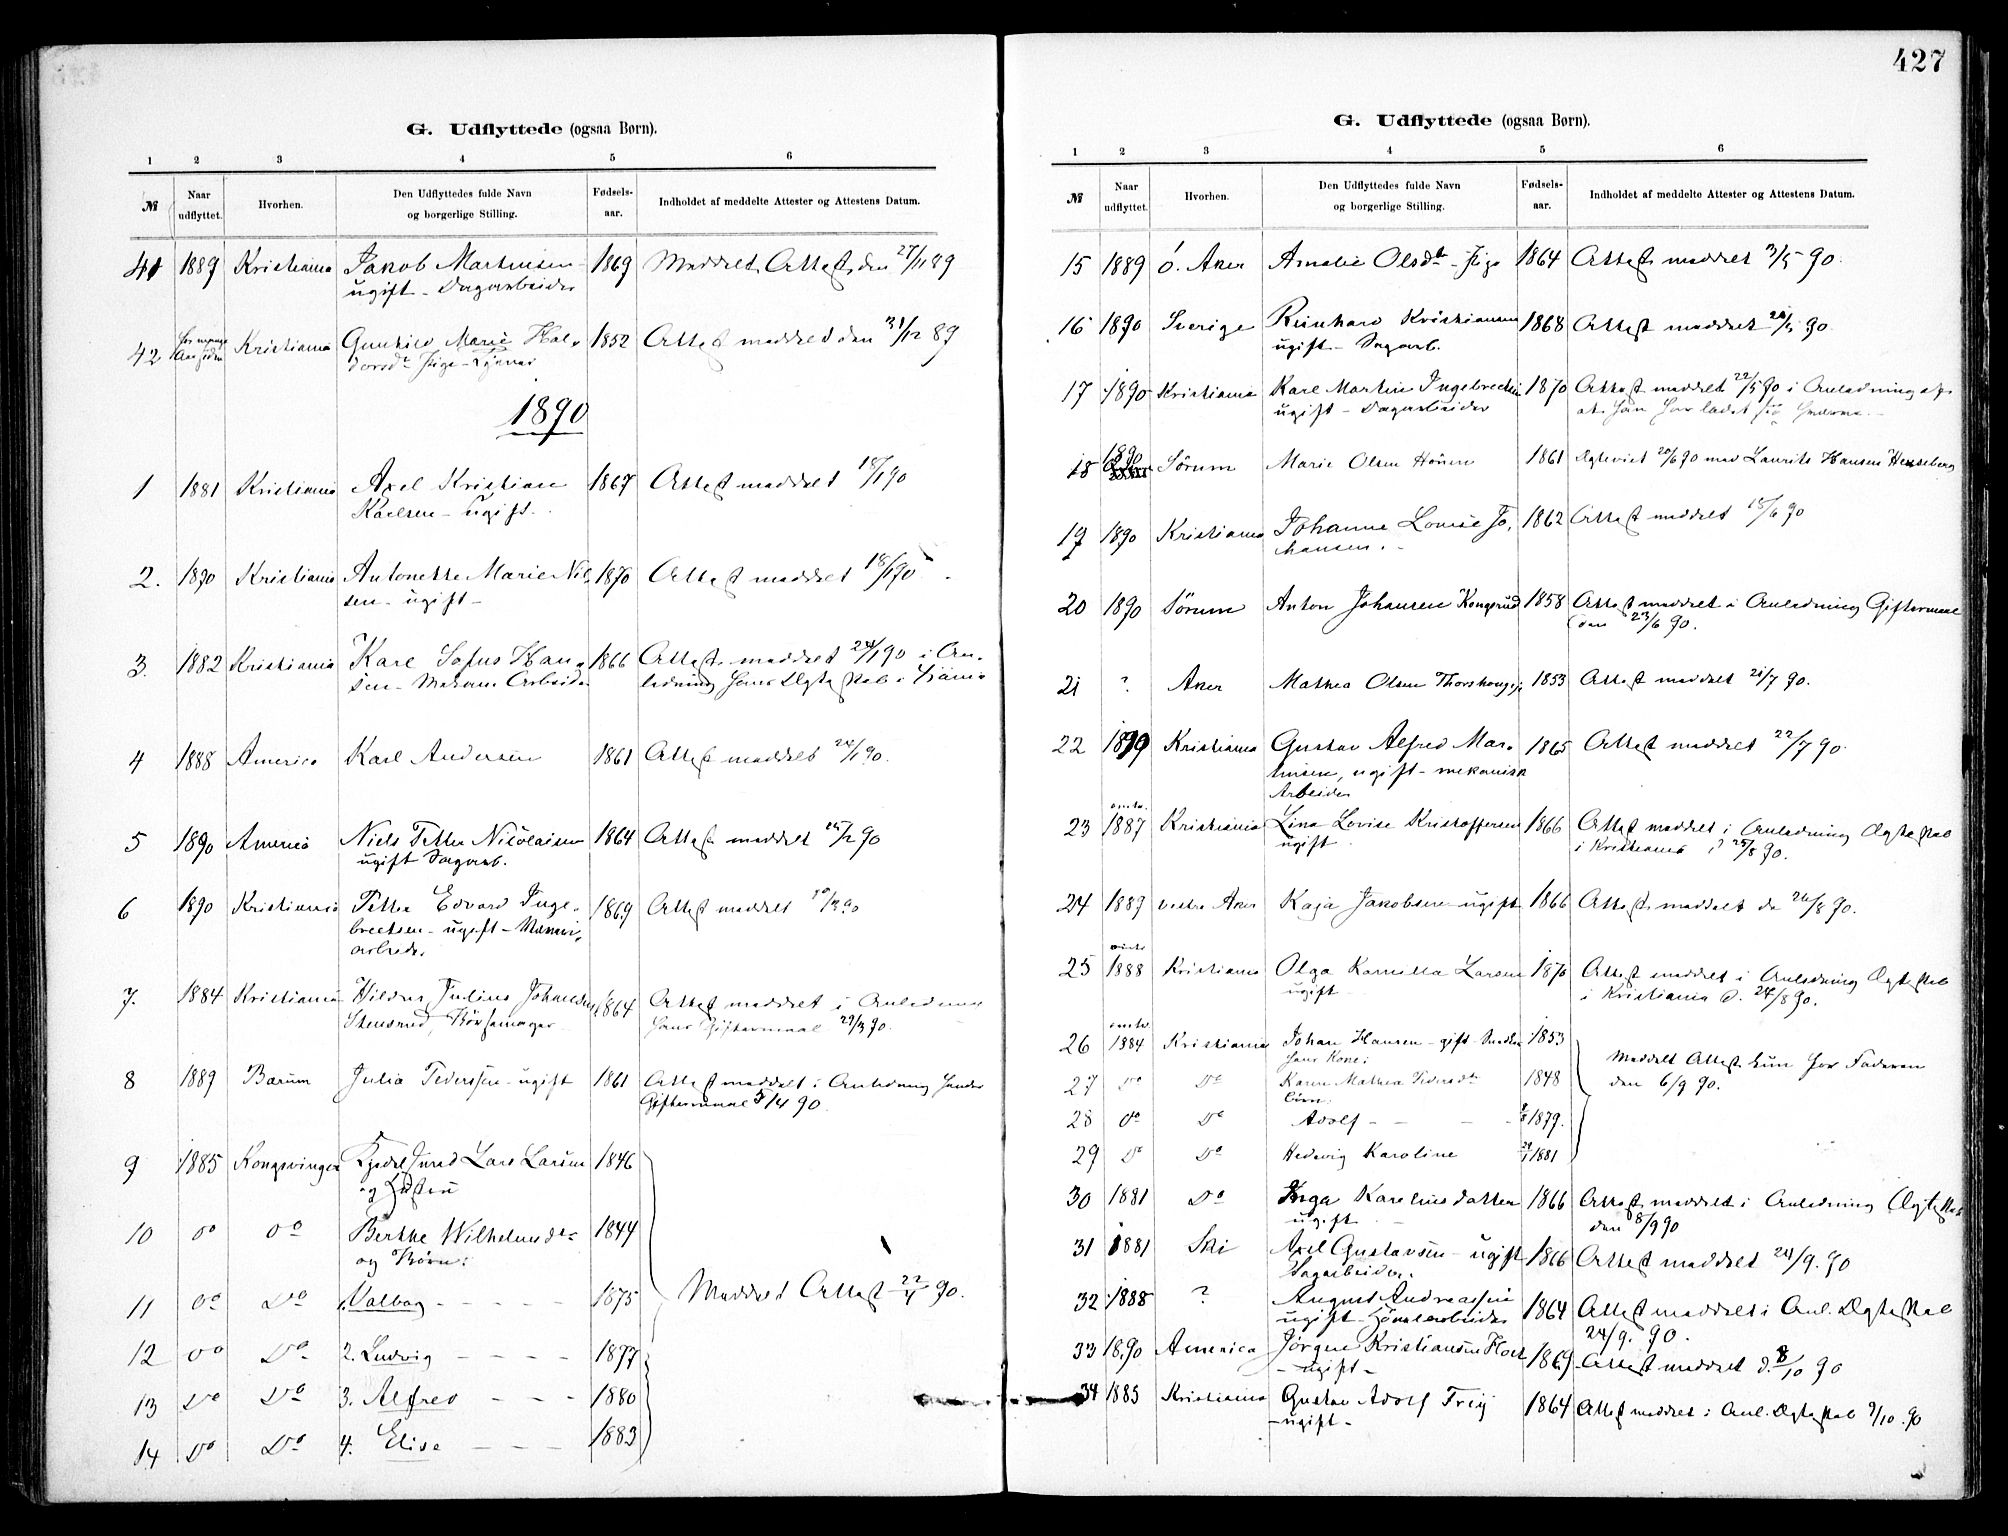 427
G. Udflyttede (ogsaa Børn).
1 2 3 4 5 6
№ Naar udflyttet. Hvorhen. Den Udflyttedes fulde Navn og borgerlige Stilling. Fødsels-aar. Indholdet af meddelte Attester og Attestens Datum.
41 1889 Kristiania Jakob Martinsen 1869 Meddelt Attest den 27/11 89
ugift - Dagarbeider
42 for mange Aar siden Kristiania Gunhild Marie Hal- 1852 Attest meddelt den 31/12 89
vorsdt Pige - Tjener
1890
1 1881 Kristiania Axel Kristian 1867 Attest meddelt 18/1 90
Karlsen - ugift.
2. 1890 Kristiania Antonette Marie Nil- 1870 Attest meddelt 18/1 90
sen - ugift -
3. 1882 Kristiania Karl Sofus Han- 1866 Attest meddelt 24/1 90 i An-
sen - Mekan. Arbeider ledning hans Ægteskab i Kr.ania
4 1888 America Karl Andersen 1861 Attest meddelt 24/1 90.
5 1890 America Niels Petter Nicolaisen 1864 Attest meddelt 25/2 90
ugift Sagarb.
6 1890 Kristiania Petter Edvard Inge- 1869 Attest meddelt 10/3 90
bretsen - ugift -
arbeider
7. 1884 Kristiania Hildus Julius Johansen 1864 Attest meddelt i Anledning
Stensrud, Børsemager hans Giftermaal 29/3 90.
8 1889 Bærum Julia Pedersen - ugift 1861 Attest meddelt i Anledning hendes
Giftermaal 5/4 90.
9 1885 Kongsvinger Lars Larsen 1846
og Hustru
10 do do Berthe Wilhelmsdt 1844
og Børn:
11 do Do 1. Valborg - - - - 1875 Meddelt Attest 22/4 90.
12 do Do 2. Ludvig - - - - 1877
13 Do Do 3. Alfred - - - 1880
14 Do Do 4. Elise - - - 1883
G. Udflyttede (ogsaa Børn).
1 2 3 4 5 6
№ Naar udflyttet. Hvorhen. Den Udflyttedes fulde Navn og borgerlige Stilling. Fødsels-aar. Indholdet af meddelte Attester og Attestens Datum.
15 1889 Ö. Aker Amalie Olsdt - Pige 1864 Attest meddelt 3/5 90.
16 1890 Sverige Reinhard Kristiansen 1868 Attest meddelt 20/5 90.
ugift - Sagarb.
17 1890 Kristiania Karl Martin Ingebretsen 1870 Attest meddelt 22/5 90 i Anledning af,
ugift - Dagarbeider at han har ladet sig
18 1890 Sörum Marie Olsen 1861 Ægteviet 20/6 90 med Laurits Hansen
19 1890 Kristiania Johanne Lovise Jo- 1862 Attest meddelt 18/6 90
hansen. -
20 1890 Sörum Anton Johansen Kongerud 1858 Attest meddelt i Anledning Giftermaal
den 23/6 90.
21 ? Aker Mathea Olsen 1853 Attest meddelt 21/7 90.
22 1890 Kristiania Gustav Alfred Mar- 1865 Attest meddelt 22/7 90.
tinsen, ugift - mekanisk
Arbeider
23 omtr. 1887 Kristiania Lina Lovise Kristoffersen 1866 Attest meddelt i Anledning Ægteskab
ugift i Kristiania d 25/8 90.
24 1889 vestre Aker Kaja Jakobsen - ugift 1866 Attest meddelt de 26/8 90.
25 omtr 1888 Kristiania Olga Kamilla Larsen 1870 Attest meddelt i Anledning Ægteskab
ugift i Kristiania d. 24/8 90.
26 omtr. 1884 Kristiania Johan Hansen - gift - Snedker 1853
hans Kone: Meddelt Attest kun for Faderen
27 do Do Karen Mathea Pedersdt 1848 den 6/9 90.
Börn:
28 do Do Adolf - - - 1879.
29 do Do Hedevig Karoline 1881
30 1881 Do Inga Kareliusdatter 1866 Attest meddelt i Anledning Ægteskab
ugift den 8/9 90
31 1881 Ski Axel Gustavsen - ugift 1866 Attest meddelt 24/9. 90
Sagarbeider.
32 1888 ? August Andreassen 1864 Attest meddelt i Anl. Ægteskab
ugift 24/9. 90.
33 1890 America Jörgen Kristiansen 1869 Attest meddelt d. 8/10 90
- ugift -
34 1883 Kristiania Gustav Adolf 1864 Attest meddelt i Anl. Ægteskab 9/10. 90
- ugift -